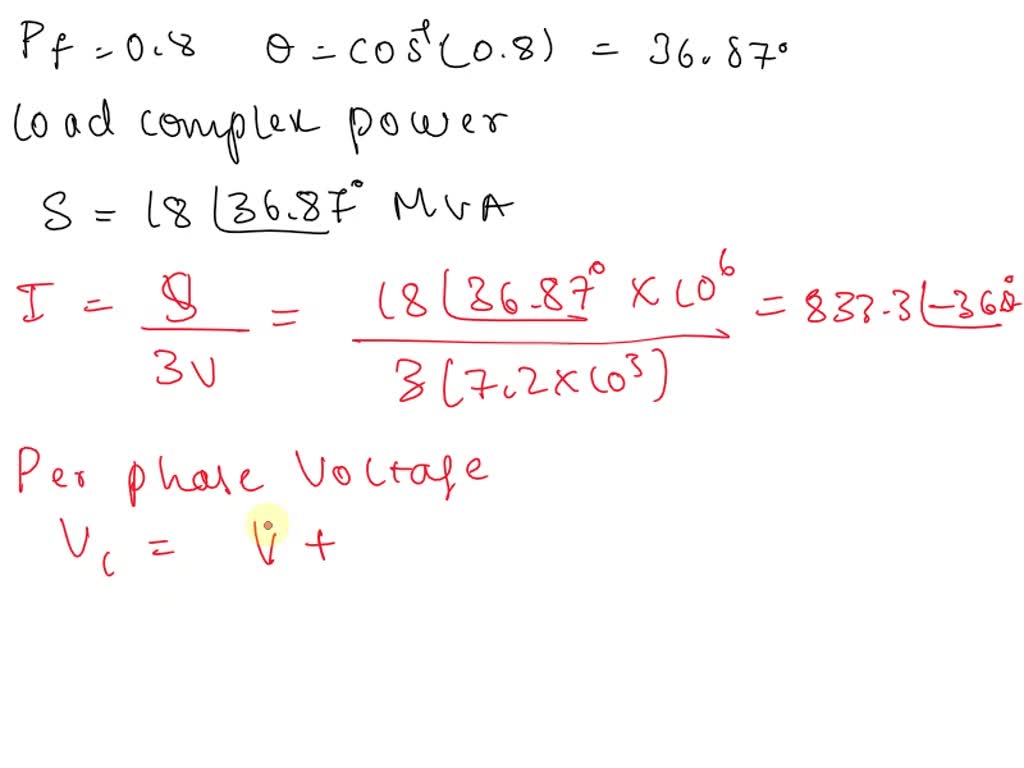 Pf = 0.8 θ = cos⁻¹(0.8) = 36.87°
Load complex power
S = 18∠36.87° MVA
I = S / 3V = 18∠36.87° × 10⁶ / 3(7.2×10³) = 833.3∠-36
Per phase Voltage
V_c = V +